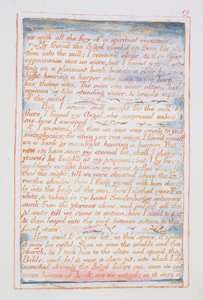 19
us with all the fury of a spiritual existence.
My friend the Angel climb'd up from his sta-
tion into the mill; I remain'd alone, & then this
appearance was no more, but I found myself sit-
ting on a pleasant bank beside a river by moon
light hearing a harper who sung to the harp. &
his theme was, The man who never alters his
opinion is like standing water, & breeds reptiles
of the mind.
But I arose, and sought for the mill, & there
I found my Angel, who surprised asked
me, how I escaped?
I answerd. All that we saw was owing to your
metaphysics; for when you ran away, I found myself
on a bank by moonlight hearing a harper, But
now we have seen my eternal lot, shall I shew you
yours? he laughd at my proposal; but I by force
suddenly caught him in my arms, & flew westerly
thro' the night, till we were elevated above the earths
shadow: then I flung myself with him direct-
ly into the body of the sun, here I clothed myself in
white, & taking in my hand Swedenborgs volumes
sunk from the glorious clime, and passed all the
planets till we came to saturn, here I staid to rest
& then leap'd into the void, between saturn & the
fixed stars.
Here said I! is your lot, in this space, if space
it may be calld, Soon we saw the stable and the
church, & I took him to the altar and open'd the
Bible, and lo! it was a deep pit, into which I de-
scended driving the Angel before me, soon we saw
seven houses of brick, one we enterd; in it were a